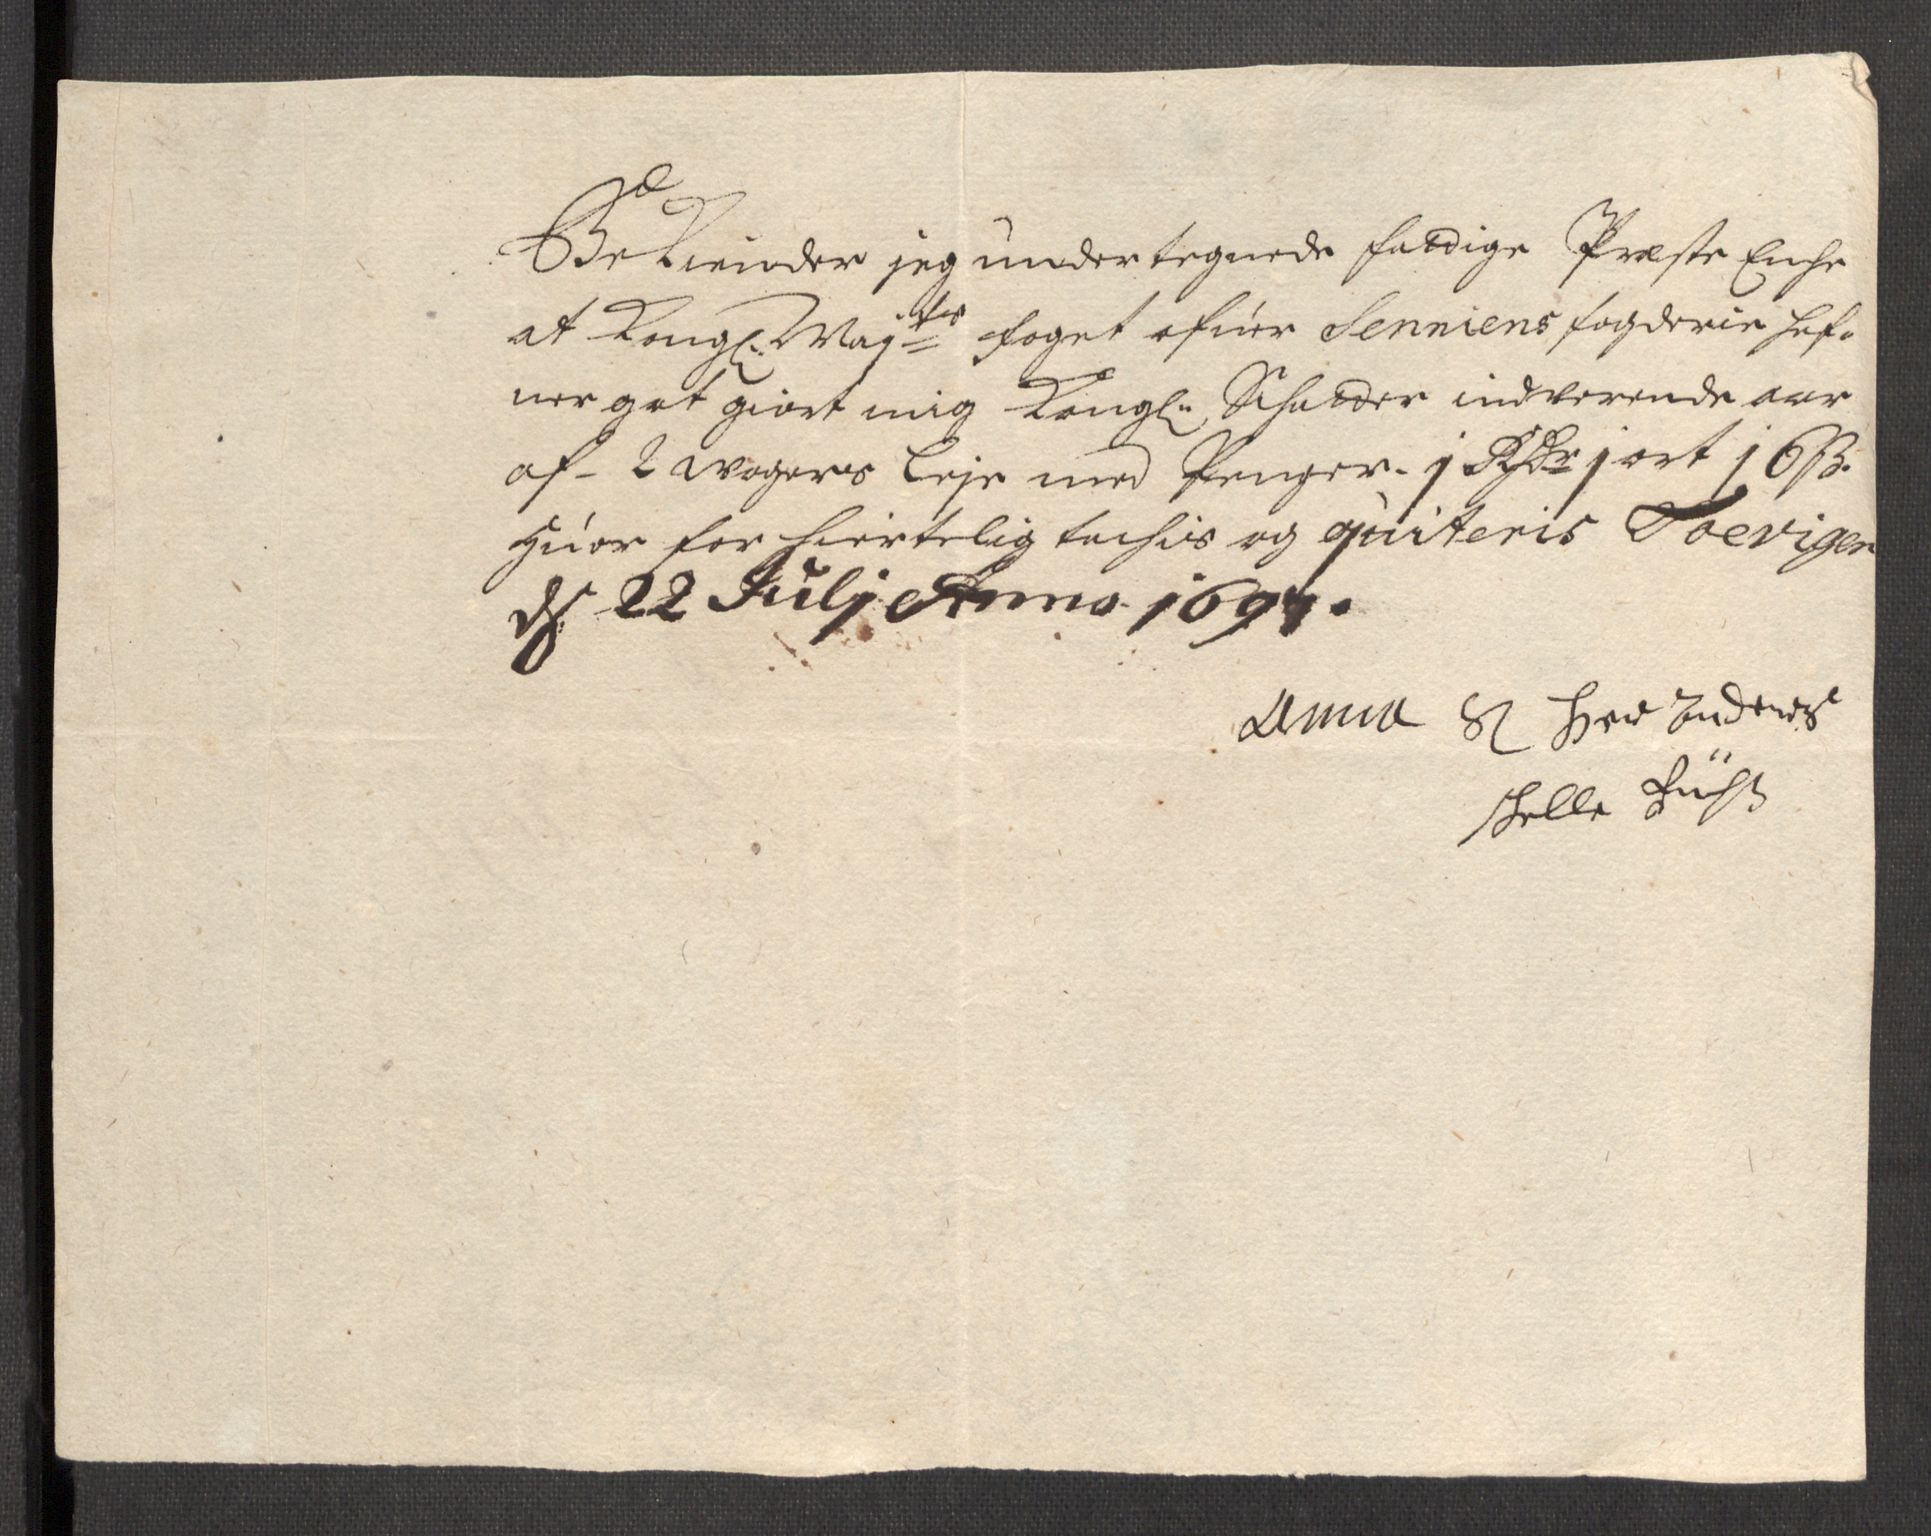 Bekiender jeg undertegnede fattige Præste Enche
at Kongl: Maj:ts foget ofuer Senniens fogderie haf-
uer got giort mig Kongl: Schatter indverende aar
af 2 wogers leje med Penger - j Rdr j ort j6 ß.
Huor for hiertelig tachis og quiteris Toevigen
ds 22 Julj Anno 1694.
Anna Sl Her Anders
helle